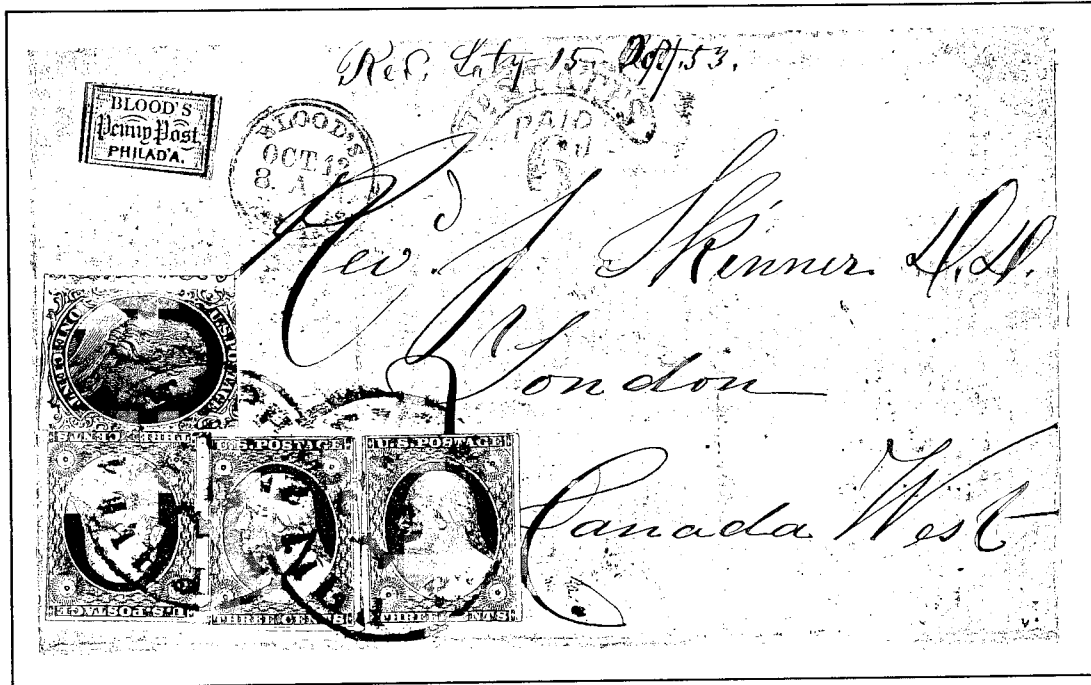 Rec. Saty 15 Oct. 53.
BLOOD'S
Penny Post
PHILAD'A.
BLOOD'S
OCT 13
8 A
UNITED STATES
PAID
6
Rev.d J Skinner D.D.
London
Canada West
ONE CENT
U.S. POSTAGE
THREE CENTS
U.S. POSTAGE
U.S. POSTAGE
THREE CENTS
U.S. POSTAGE
THREE CENTS